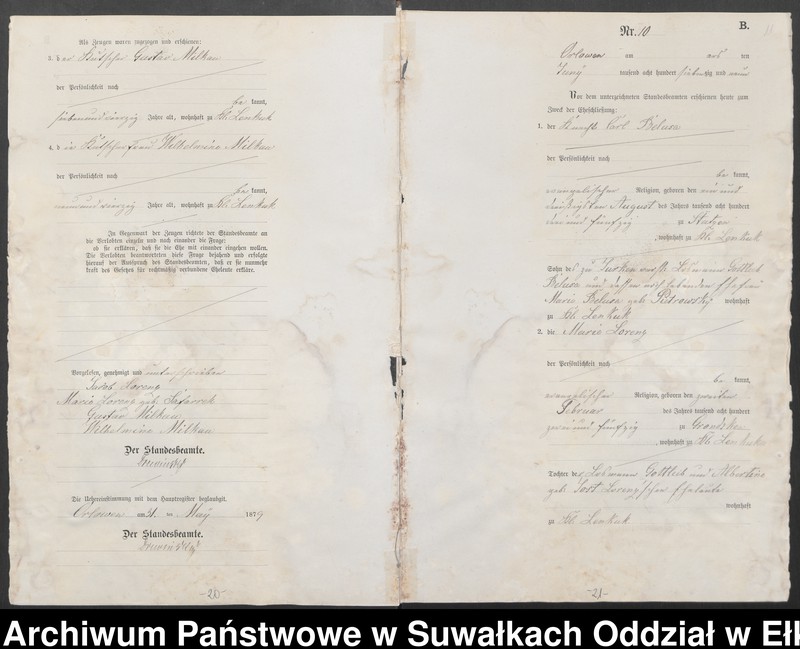 Als Zeugen waren zugezogen und erschienen:
3. der Kutscher Gustav Milkau
der Persönlichkeit nach
be kannt,
siebenundvierzig Jahre alt, wohnhaft zu Kl. Lenkuk
4. die Kutscherfrau Wilhelmine Milkau
der Persönlichkeit nach
be kannt,
neunundvierzig Jahre alt, wohnhaft zu Kl. Lenkuk
In Gegenwart der Zeugen richtete der Standesbeamte an
die Verlobten einzeln und nach einander die Frage:
ob sie erklären, daß sie die Ehe mit einander eingehen wollen.
Die Verlobten beantworteten diese Frage bejahend und erfolgte
hierauf der Ausspruch des Standesbeamten, daß er sie nunmehr
kraft des Gesetzes für rechtmäßig verbundene Eheleute erkläre.
Vorgelesen, genehmigt und unterschrieben
Jacob Lorenz
Marie Lorenz geb.
Gustav Milkau
Wilhelmine Milkau
Der Standesbeamte.
Die Uebereinstimmung mit dem Hauptregister beglaubigt.
Orlowen am 21. ten May 1879
Der Standesbeamte.
-20-
B.
Nr. 10
Orlowen am ten
Juny tausend acht hundert siebenzig und neun
Vor dem unterzeichneten Standesbeamten erschienen heute zum
Zweck der Eheschließung:
1. der Knecht Carl Belusa
der Persönlichkeit nach
be kannt,
evangelischer Religion, geboren den ein und
dreißigsten August des Jahres tausend acht hundert
drei und fünfzig zu Statzen
, wohnhaft zu Kl. Lenkuk
Sohn des zu Losmann Gottlieb
Belusa und dessen Ehefrau
Marie Belusa geb. Pietrowsky wohnhaft
zu Kl. Lenkuk
2. die Marie Lorenz
der Persönlichkeit nach
be kannt,
evangelischer Religion, geboren den zweiten
Februar des Jahres tausend acht hundert
zwei und fünfzig zu Grondzken
, wohnhaft zu Kl. Lenkuk
Tochter der Losmann Gottlieb und Albertine
geb. Lorenz'schen Eheleute
wohnhaft
zu Kl. Lenkuk
-21-
Archiwum Państwowe w Suwałkach Oddział w Eł